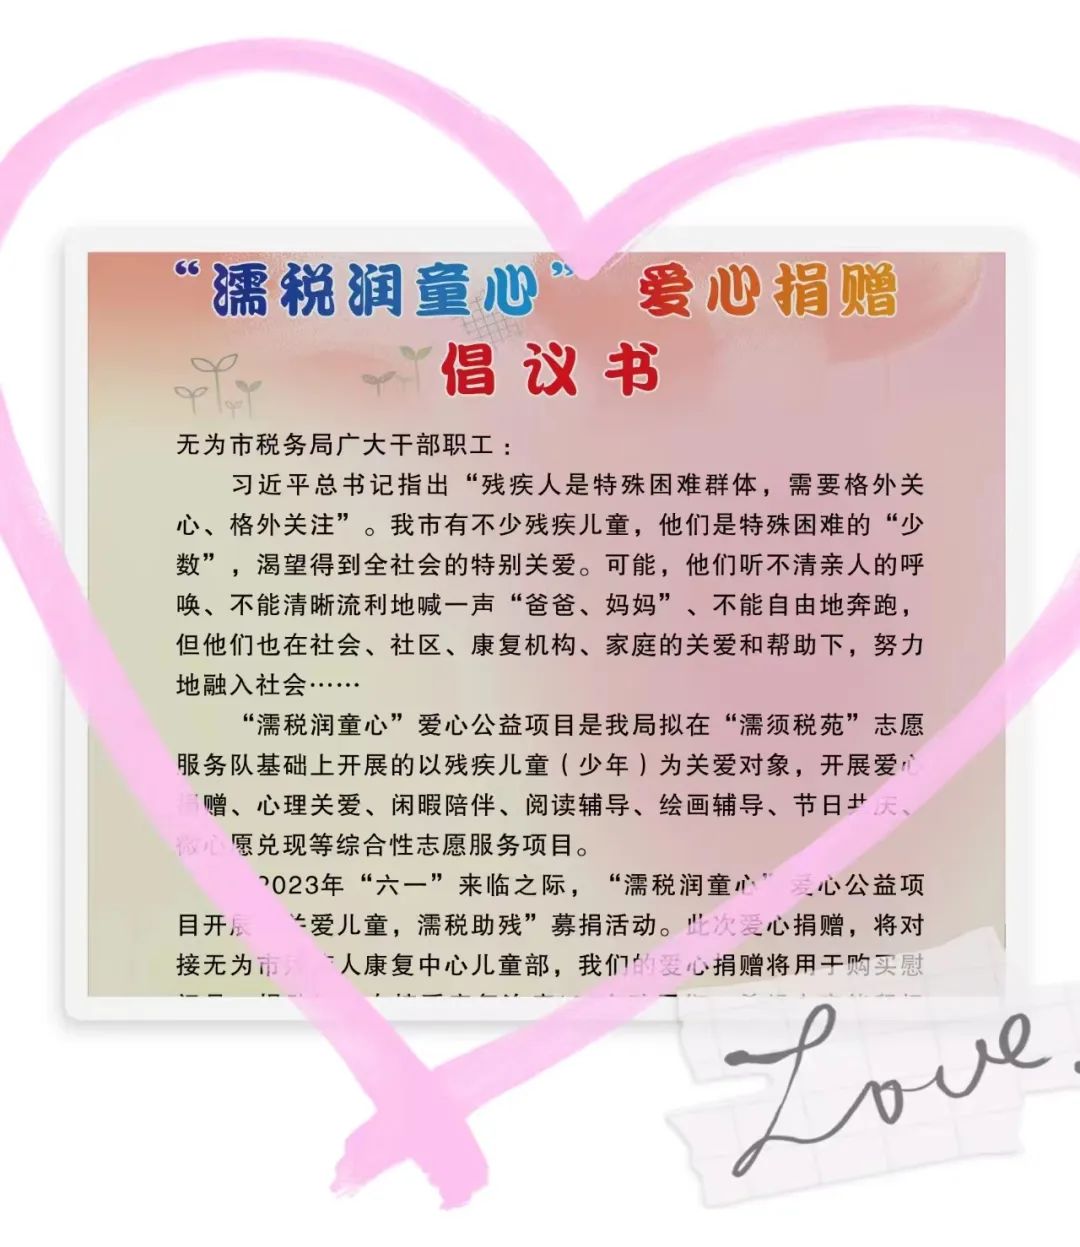 “濡税润童心” 爱心捐赠
倡议书
无为市税务局广大干部职工：
习近平总书记指出“残疾人是特殊困难群体，需要格外关
心、格外关注”。我市有不少残疾儿童，他们是特殊困难的“少
数”，渴望得到全社会的特别关爱。可能，他们听不清亲人的呼
唤、不能清晰流利地喊一声“爸爸、妈妈”、不能自由地奔跑，
但他们也在社会、社区、康复机构、家庭的关爱和帮助下，努力
地融入社会……
“濡税润童心”爱心公益项目是我局拟在“濡须税苑”志愿
服务队基础上开展的以残疾儿童（少年）为关爱对象，开展爱心
捐赠、心理关爱、闲暇陪伴、阅读辅导、绘画辅导、节日共庆、
微心愿兑现等综合性志愿服务项目。
2023年“六一”来临之际，“濡税润童心”爱心公益项
目开展“关爱儿童，濡税助残”募捐活动。此次爱心捐赠，将对
接无为市残疾人康复中心儿童部，我们的爱心捐赠将用于购买慰
Love.